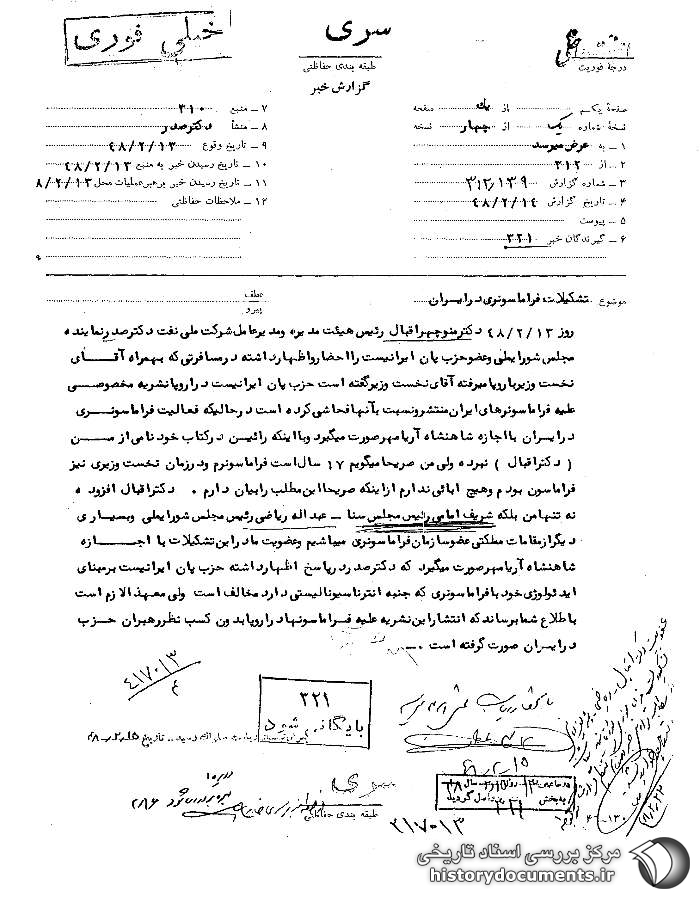 خیلی فوری
سری
طبقه بندی حفاظتی
گزارش خبر
درجهٔ فوریت
صفحهٔ یکم از یک صفحه
نسخهٔ شماره یک از چهار نسخه
۱ ـ به عرض میرسد
۲ ـ از ۳۱۲
۳ ـ شماره گزارش ۳۱۲/۱۳۹
۴ ـ تاریخ گزارش ۴۸/۲/۱۴
۵ ـ پیوست
۶ ـ گیرندگان خبر ۳۲۱
۷ ـ منبع ۳۱۰
۸ ـ منشأ دکتر صدر
۹ ـ تاریخ وقوع ۴۸/۲/۱۳
۱۰ ـ تاریخ رسیدن خبر به منبع ۴۸/۲/۱۳
۱۱ ـ تاریخ رسیدن خبر برهبر عملیات محل ۸/۲/۱۳
۱۲ ـ ملاحظات حفاظتی
موضوع تشکیلات فراماسونری در ایران
عطف
پیرو
روز ۴۸/۲/۱۳ دکتر منوچهر اقبال رئیس هیئت مدیره ومدیرعامل شرکت ملی نفت دکتر صدر نماینده
مجلس شورایملی وعضو حزب پان ایرانیست را احضار واظهار داشته در مسافرتی که بهمراه آقای
نخست وزیر باروپا میرفته آقای نخست وزیر گفته است حزب پان ایرانیست در اروپا نشریه مخصوصی
علیه فراماسونرهای ایران منتشر ونسبت بآنها فحاشی کرده است در حالیکه فعالیت فراماسونری
در ایران با اجازه شاهنشاه آریامهر صورت میگیرد وبا اینکه رائین در کتاب خود نامی از من
( دکتر اقبال ) نبرده ولی من صریحا میگویم ۱۷ سال است فراماسونرم ودر زمان نخست وزیری نیز
فراماسون بودم وهیچ ابائی ندارم از اینکه صریحا این مطلب را بیان دارم . دکتر اقبال افزوده
نه تنها من بلکه شریف امامی رئیس مجلس سنا ـ عبداله ریاضی رئیس مجلس شورایملی وبسیاری
دیگر از مقامات مملکتی عضو سازمان فراماسونری میباشیم وعضویت ما در این تشکیلات با اجازه
شاهنشاه آریامهر صورت میگیرد که دکتر صدر در پاسخ اظهار داشته حزب پان ایرانیست بر مبنای
ایدئولوژی خود با فراماسونری که جنبه انترناسیونالیستی دارد مخالف است ولی معهذا لازم است
باطلاع شما برساند که انتشار این نشریه علیه فراماسونها در اروپا بدون کسب نظر رهبران حزب
در ایران صورت گرفته است .
۴۱۷۰۱۳
۳۲۱
بایگانی شود
سری
طبقه بندی حفاظتی
۲۱۷۰۱۳
مرکز بررسی اسناد تاریخی
historydocuments.ir